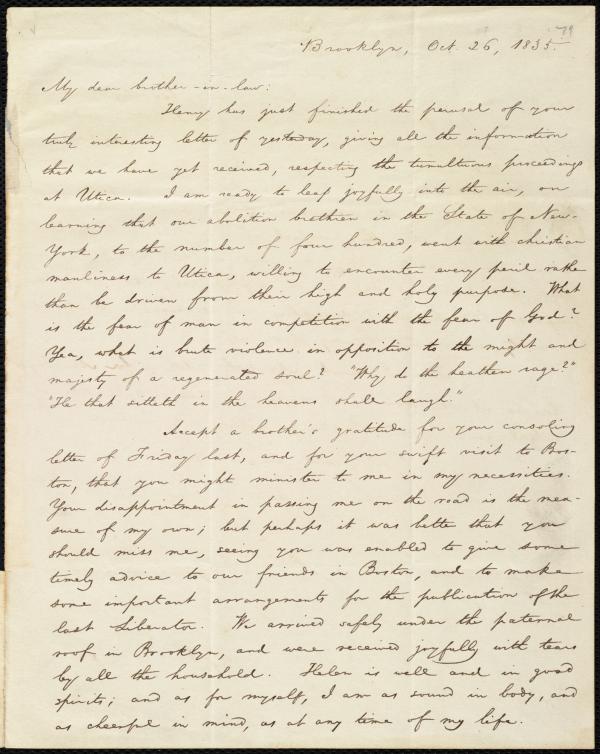 79
Brooklyn, Oct. 26, 1835.
My dear brother-in-law:
Henry has just finished the perusal of your
truly interesting letter of yesterday, giving all the information
that we have yet received, respecting the tumultuous proceedings
at Utica. I am ready to leap joyfully into the air, on
learning that our abolition brethren in the State of New-
York, to the number of four hundred, went with christian
manliness to Utica, willing to encounter every peril rather
than be driven from their high and holy purpose. What
is the fear of man in competition with the fear of God?
Yea, what is brute violence in opposition to the might and
majesty of a regenerated soul? "Why do the heathen rage?"
"He that sitteth in the heavens shall laugh."
Accept a brother's gratitude for your consoling
letter of Friday last, and for your swift visit to Bos-
ton, that you might minister to me in my necessities.
Your disappointment in passing me on the road is the mea-
sure of my own; but perhaps it was better that you
should miss me, seeing you was enabled to give some
timely advice to our friends in Boston, and to make
some important arrangements for the publication of the
last Liberator. We arrived safely under the paternal
roof in Brooklyn, and were received joyfully with tears
by all the household. Helen is well and in good
spirits; and as for myself, I am as sound in body, and
as cheerful in mind, as at any time of my life.